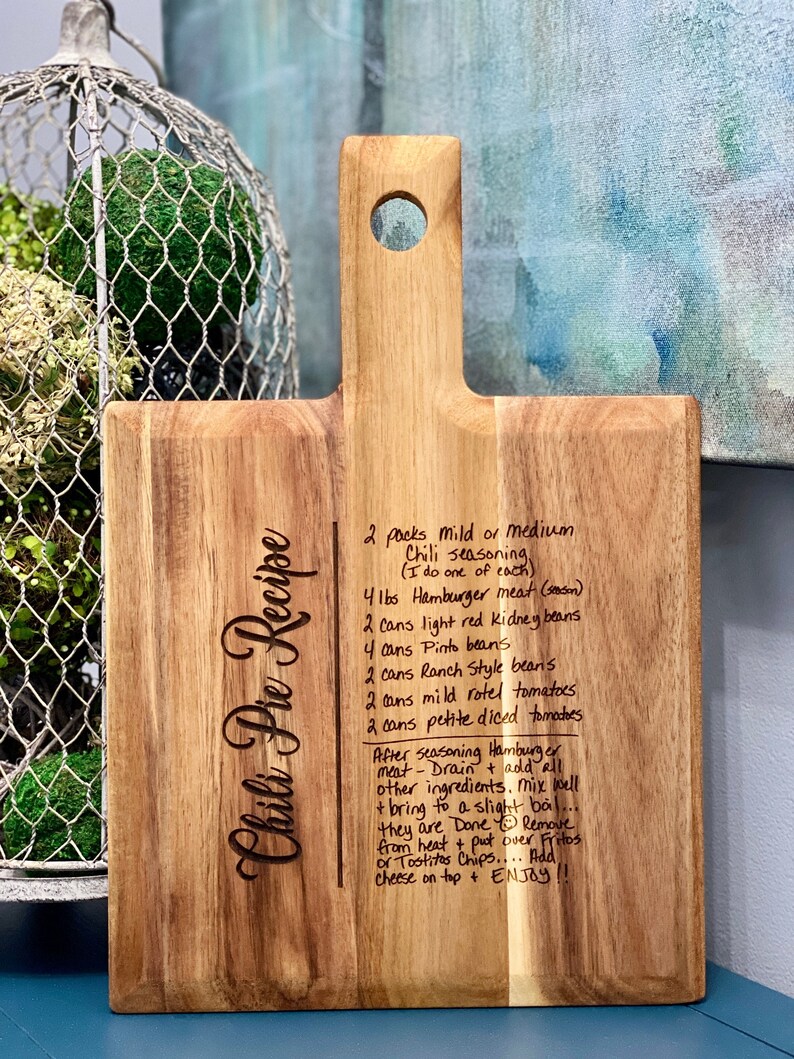 Chili Pie Recipe
2 packs mild or medium
Chili seasoning
(I do one of each)
4 lbs Hamburger meat (season)
2 cans light red kidney beans
4 cans Pinto beans
2 cans Ranch Style beans
2 cans mild rotel tomatoes
2 cans petite diced tomatoes
After seasoning Hamburger
meat - Drain + add all
other ingredients. Mix well
+ bring to a slight boil...
they are Done ☺ Remove
from heat + put over Fritos
or Tostitos Chips.... Add
cheese on top + ENJOY!!